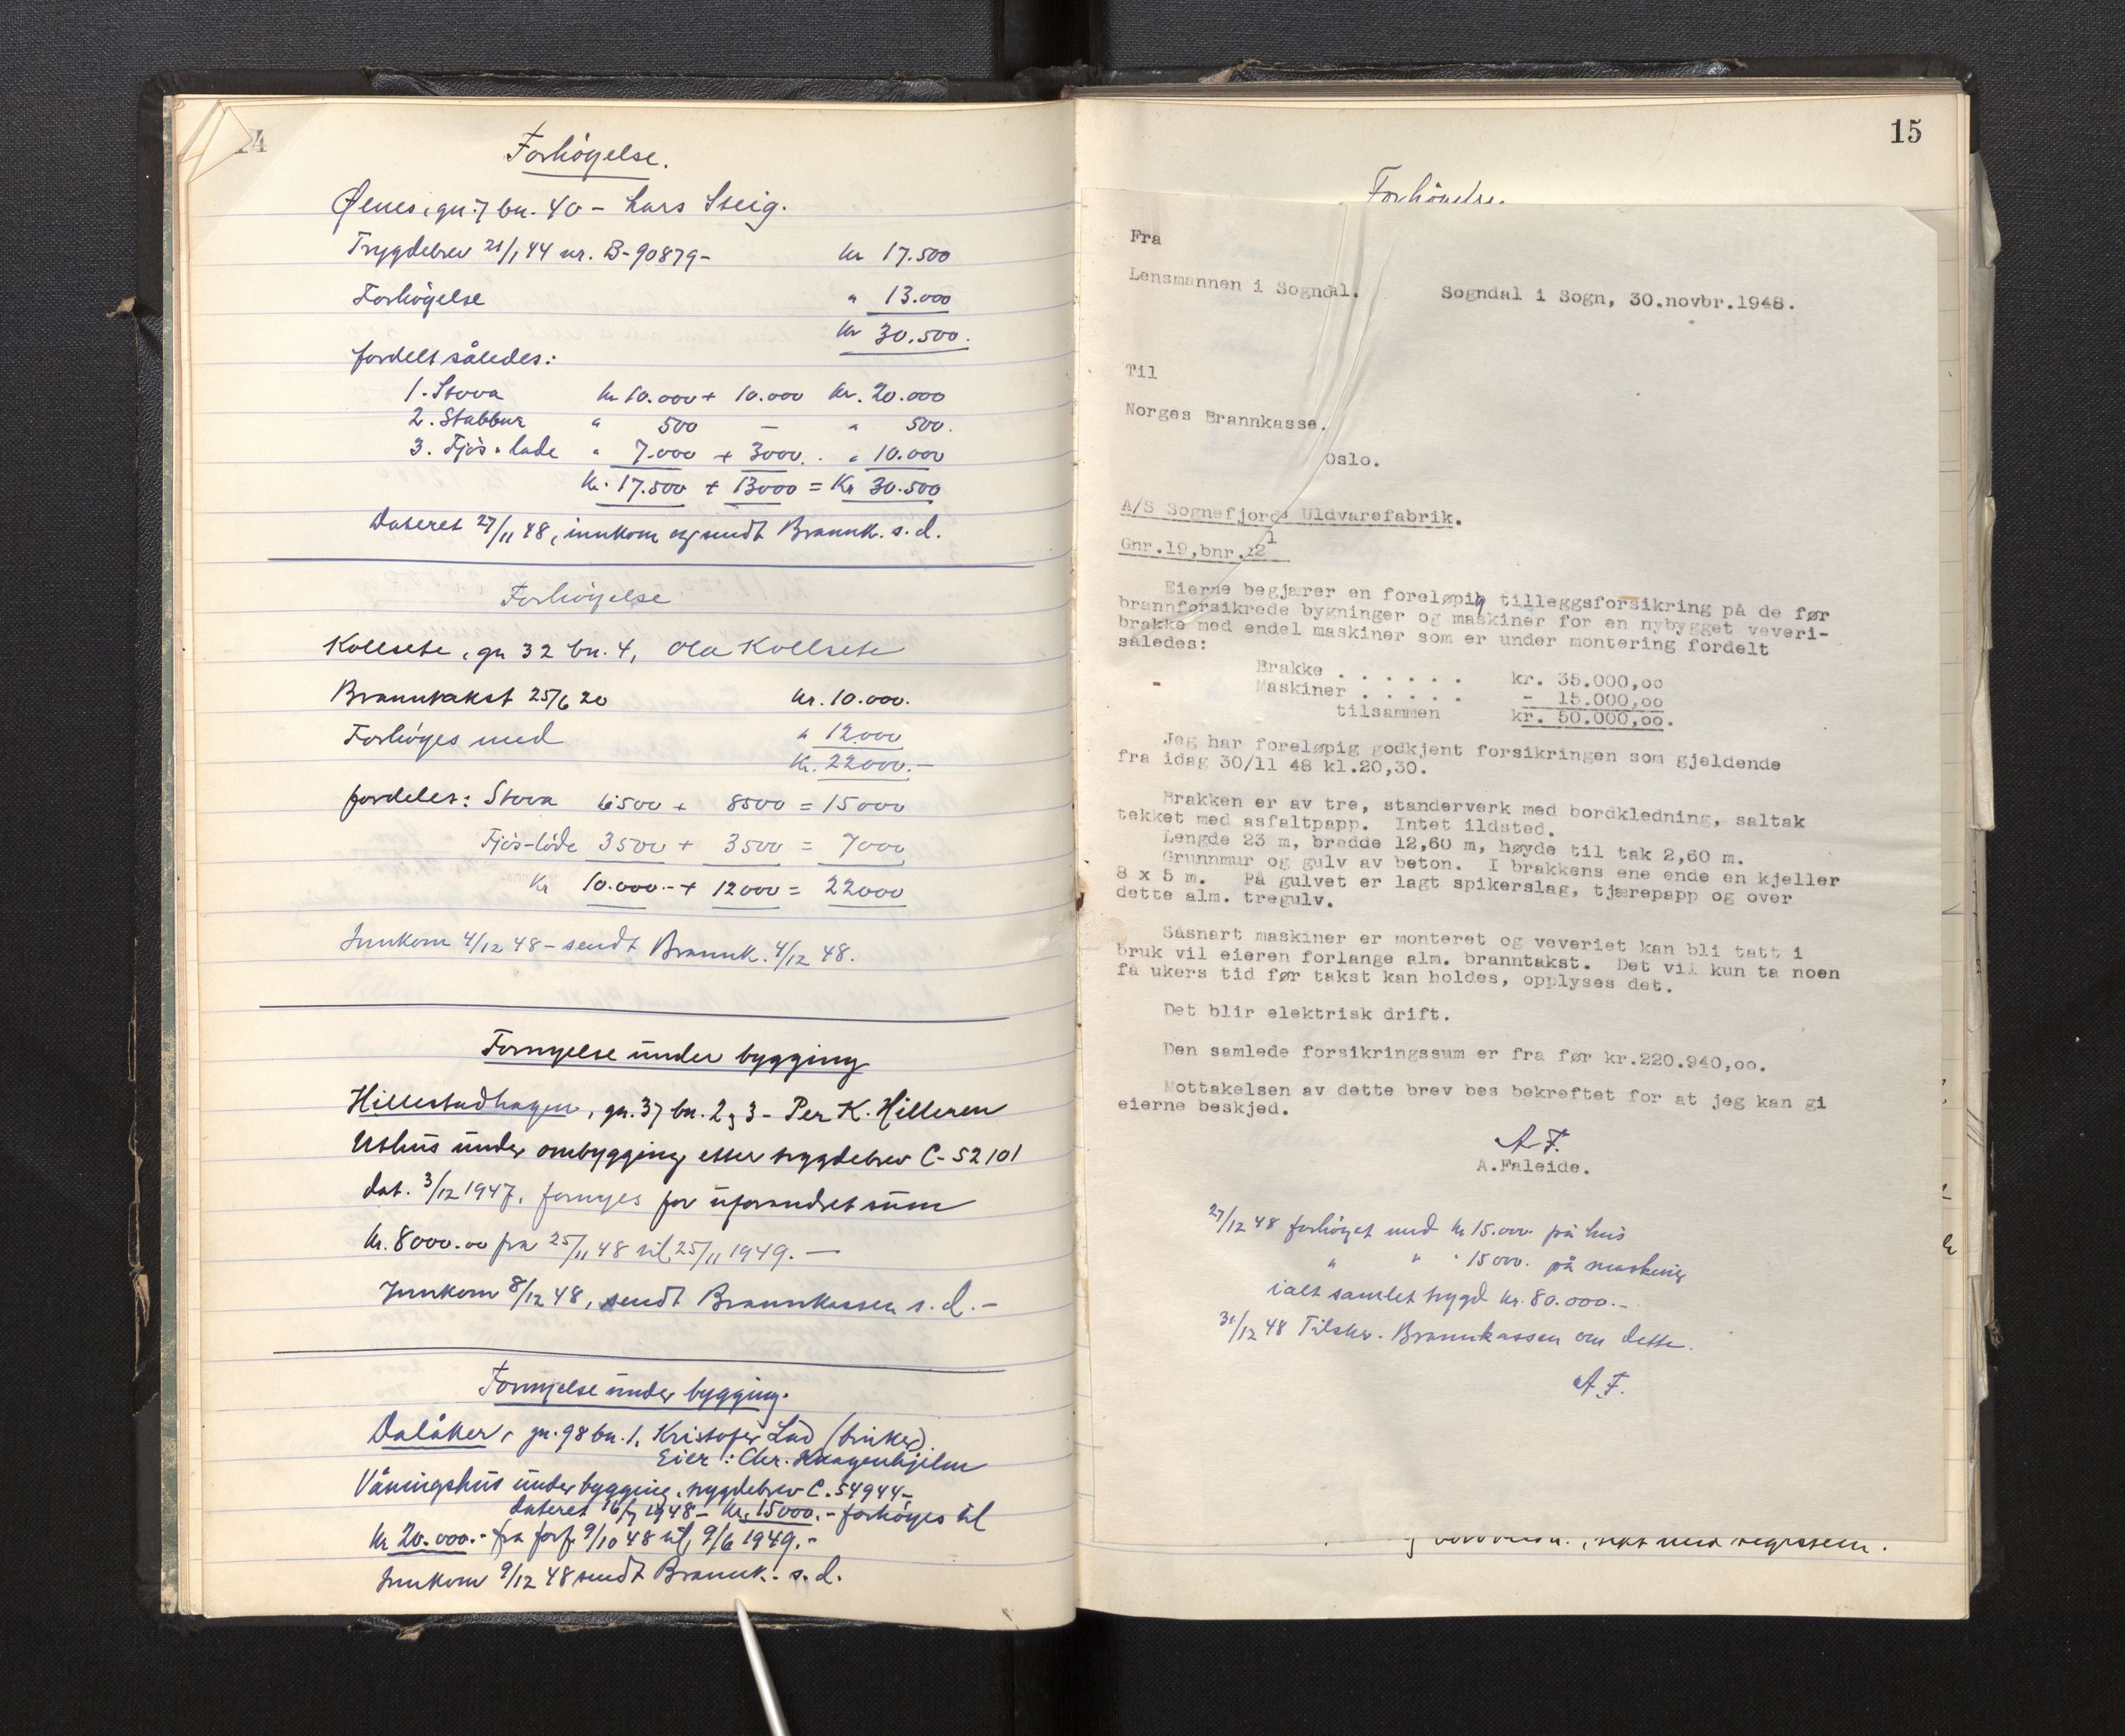 14
Forhøyelse.
Øenes, gn. 7 bn. 40 - Lars Steig.
Trygdebrev 21/1 44 nr. B-90879- kr 17.500
Forhøyelse " 13.000
kr 30.500.
fordelt således:
1. Stova kr 10.000 + 10.000 kr. 20.000
2. Stabbur " 500 - " 500.
3. Fjøs-lade " 7.000 + 3000. " 10.000
kr. 17.500 + 13000 = Kr 30.500
Dateret 27/11 48, innkom og sendt Brannk. s.d.
Forhøyelse
Kollsete, gn 32 bn. 4, Ola Kollsete
Branntakst 25/6 20 kr. 10.000.
Forhøyes med " 12.000
Kr. 22000.-
fordeles: Stova 6500 + 8500 = 15000
Fjøs-löde 3500 + 3500 = 7000
Kr 10.000.- + 12000 = 22000
Innkom 4/12 48 - sendt Brannk. 4/12 48.
Fornyelse under bygging
Hillestadhagen, gn. 37 bn. 2 og 3 - Per K. Hilleren
Uthus under ombygging etter trygdebrev C-52101
dat. 3/12 1947, fornyes for uforandret sum
kr. 8000.00 fra 25/11 48 til 25/11 1949. -
Innkom 8/12 48, sendt Brannkassen s.d. -
Fornyelse under bygging.
Dalåker, gn. 98 bn. 1, Kristofer Lad (bruker).
Eier: Chr. Knagenhjelm
Våningshus under bygging, trygdebrev C. 54944-
dateret 16/7 1948 - kr. 15000.- forhøyes til
kr 20.000.- fra forf. 9/10 48 til 9/6 1949.-
Innkom 9/12 48 sendt Brannk. s.d.
15
Forhøyelse.
Fra
Lensmannen i Sogndal.
Sogndal i Sogn, 30.novbr.1948.
Til
Norges Brannkasse.
Oslo.
A/S Sognefjords Uldvarefabrik.
Gnr.19,bnr.12 1
Eierne begjærer en foreløpig tilleggsforsikring på de før
brannforsikrede bygninger og maskiner for en nybygget veveri-
brakke med endel maskiner som er under montering fordelt
således:
Brakke . . . . . . kr. 35.000,oo
Maskiner . . . . . - 15.000,oo
tilsammen kr. 50.000,oo.
Jeg har foreløpig godkjent forsikringen som gjeldende
fra idag 30/11 48 kl.20,30.
Brakken er av tre, standerverk med bordkledning, saltak
tekket med asfaltpapp. Intet ildsted.
Lengde 23 m, bredde 12,60 m, høyde til tak 2,60 m.
Grunnmur og gulv av beton. I brakkens ene ende en kjeller
8 x 5 m. På gulvet er lagt spikerslag, tjærepapp og over
dette alm. tregulv.
Såsnart maskiner er monteret og veveriet kan bli tatt i
bruk vil eieren forlange alm. branntakst. Det vil kun ta noen
få ukers tid før takst kan holdes, opplyses det.
Det blir elektrisk drift.
Den samlede forsikringssum er fra før kr.220.940,oo.
Mottakelsen av dette brev bes bekreftet for at jeg kan gi
eierne beskjed.
A F.
A.Faleide.
27/12 48 forhøyet med kr 15.000. på hus
" " " 15000. på maskiner
ialt samlet trygd kr. 80.000.-
31/12 48 Tilskr. Brannkassen om dette.
A F.
med registern.